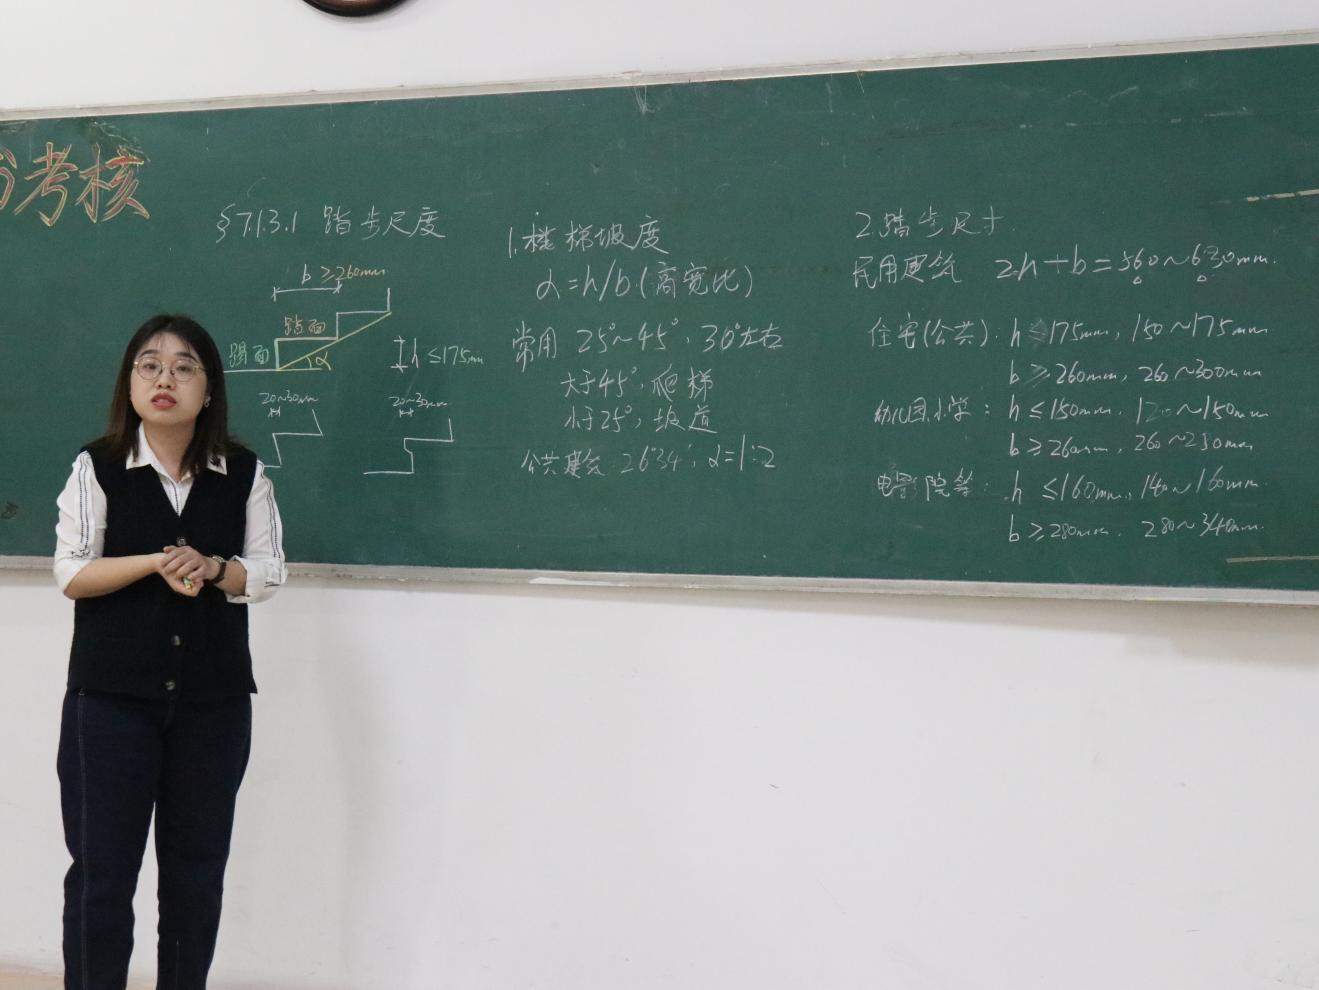 考核
§7.1.3.1 踏步尺度
b ≥260mm
踏面
踢面
α
h ≤175mm
20~30mm
20~30mm
1.楼梯坡度
α=h/b(高宽比)
常用 25°~45°, 30°左右
大于45°, 爬梯
小于25°, 坡道
公共建筑 26°34′, α=1:2
2.踏步尺寸
民用建筑 2h+b=560~630mm.
住宅(公共): h ≤175mm, 150~175mm
b ≥260mm, 260~300mm
幼儿园小学: h ≤150mm, 120~150mm
b ≥260mm, 260~280mm
电影院等: h ≤160mm, 140~160mm
b ≥280mm. 280~340mm.